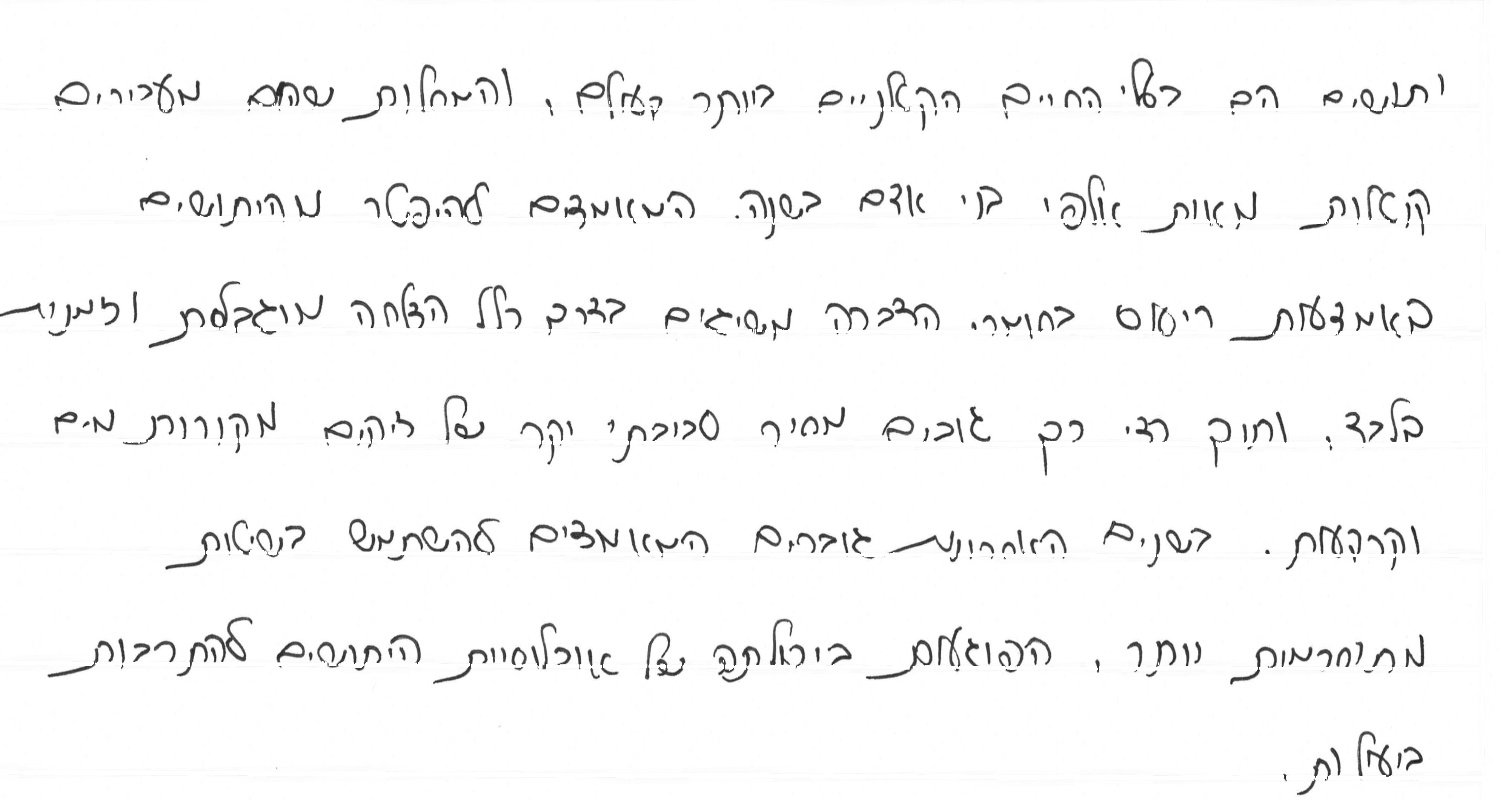 יתושים הם בעלי החיים הקטלניים ביותר בעולם, והמחלות שהם מעבירים
קוטלות מאות אלפי בני אדם בשנה. המאמצים להיפטר מהיתושים
באמצעות ריסוס בחומרי הדברה משיגים בדרך כלל הצלחה מוגבלת וזמנית
בלבד, ותוך כדי כך גובים מחיר סביבתי יקר של זיהום מקורות מים
וקרקעות. בשנים האחרונות גוברים המאמצים להשתמש בשיטות
מתוחכמות יותר, הפוגעות ביכולתה של אוכלוסיית היתושים להתרבות
ביעילות.